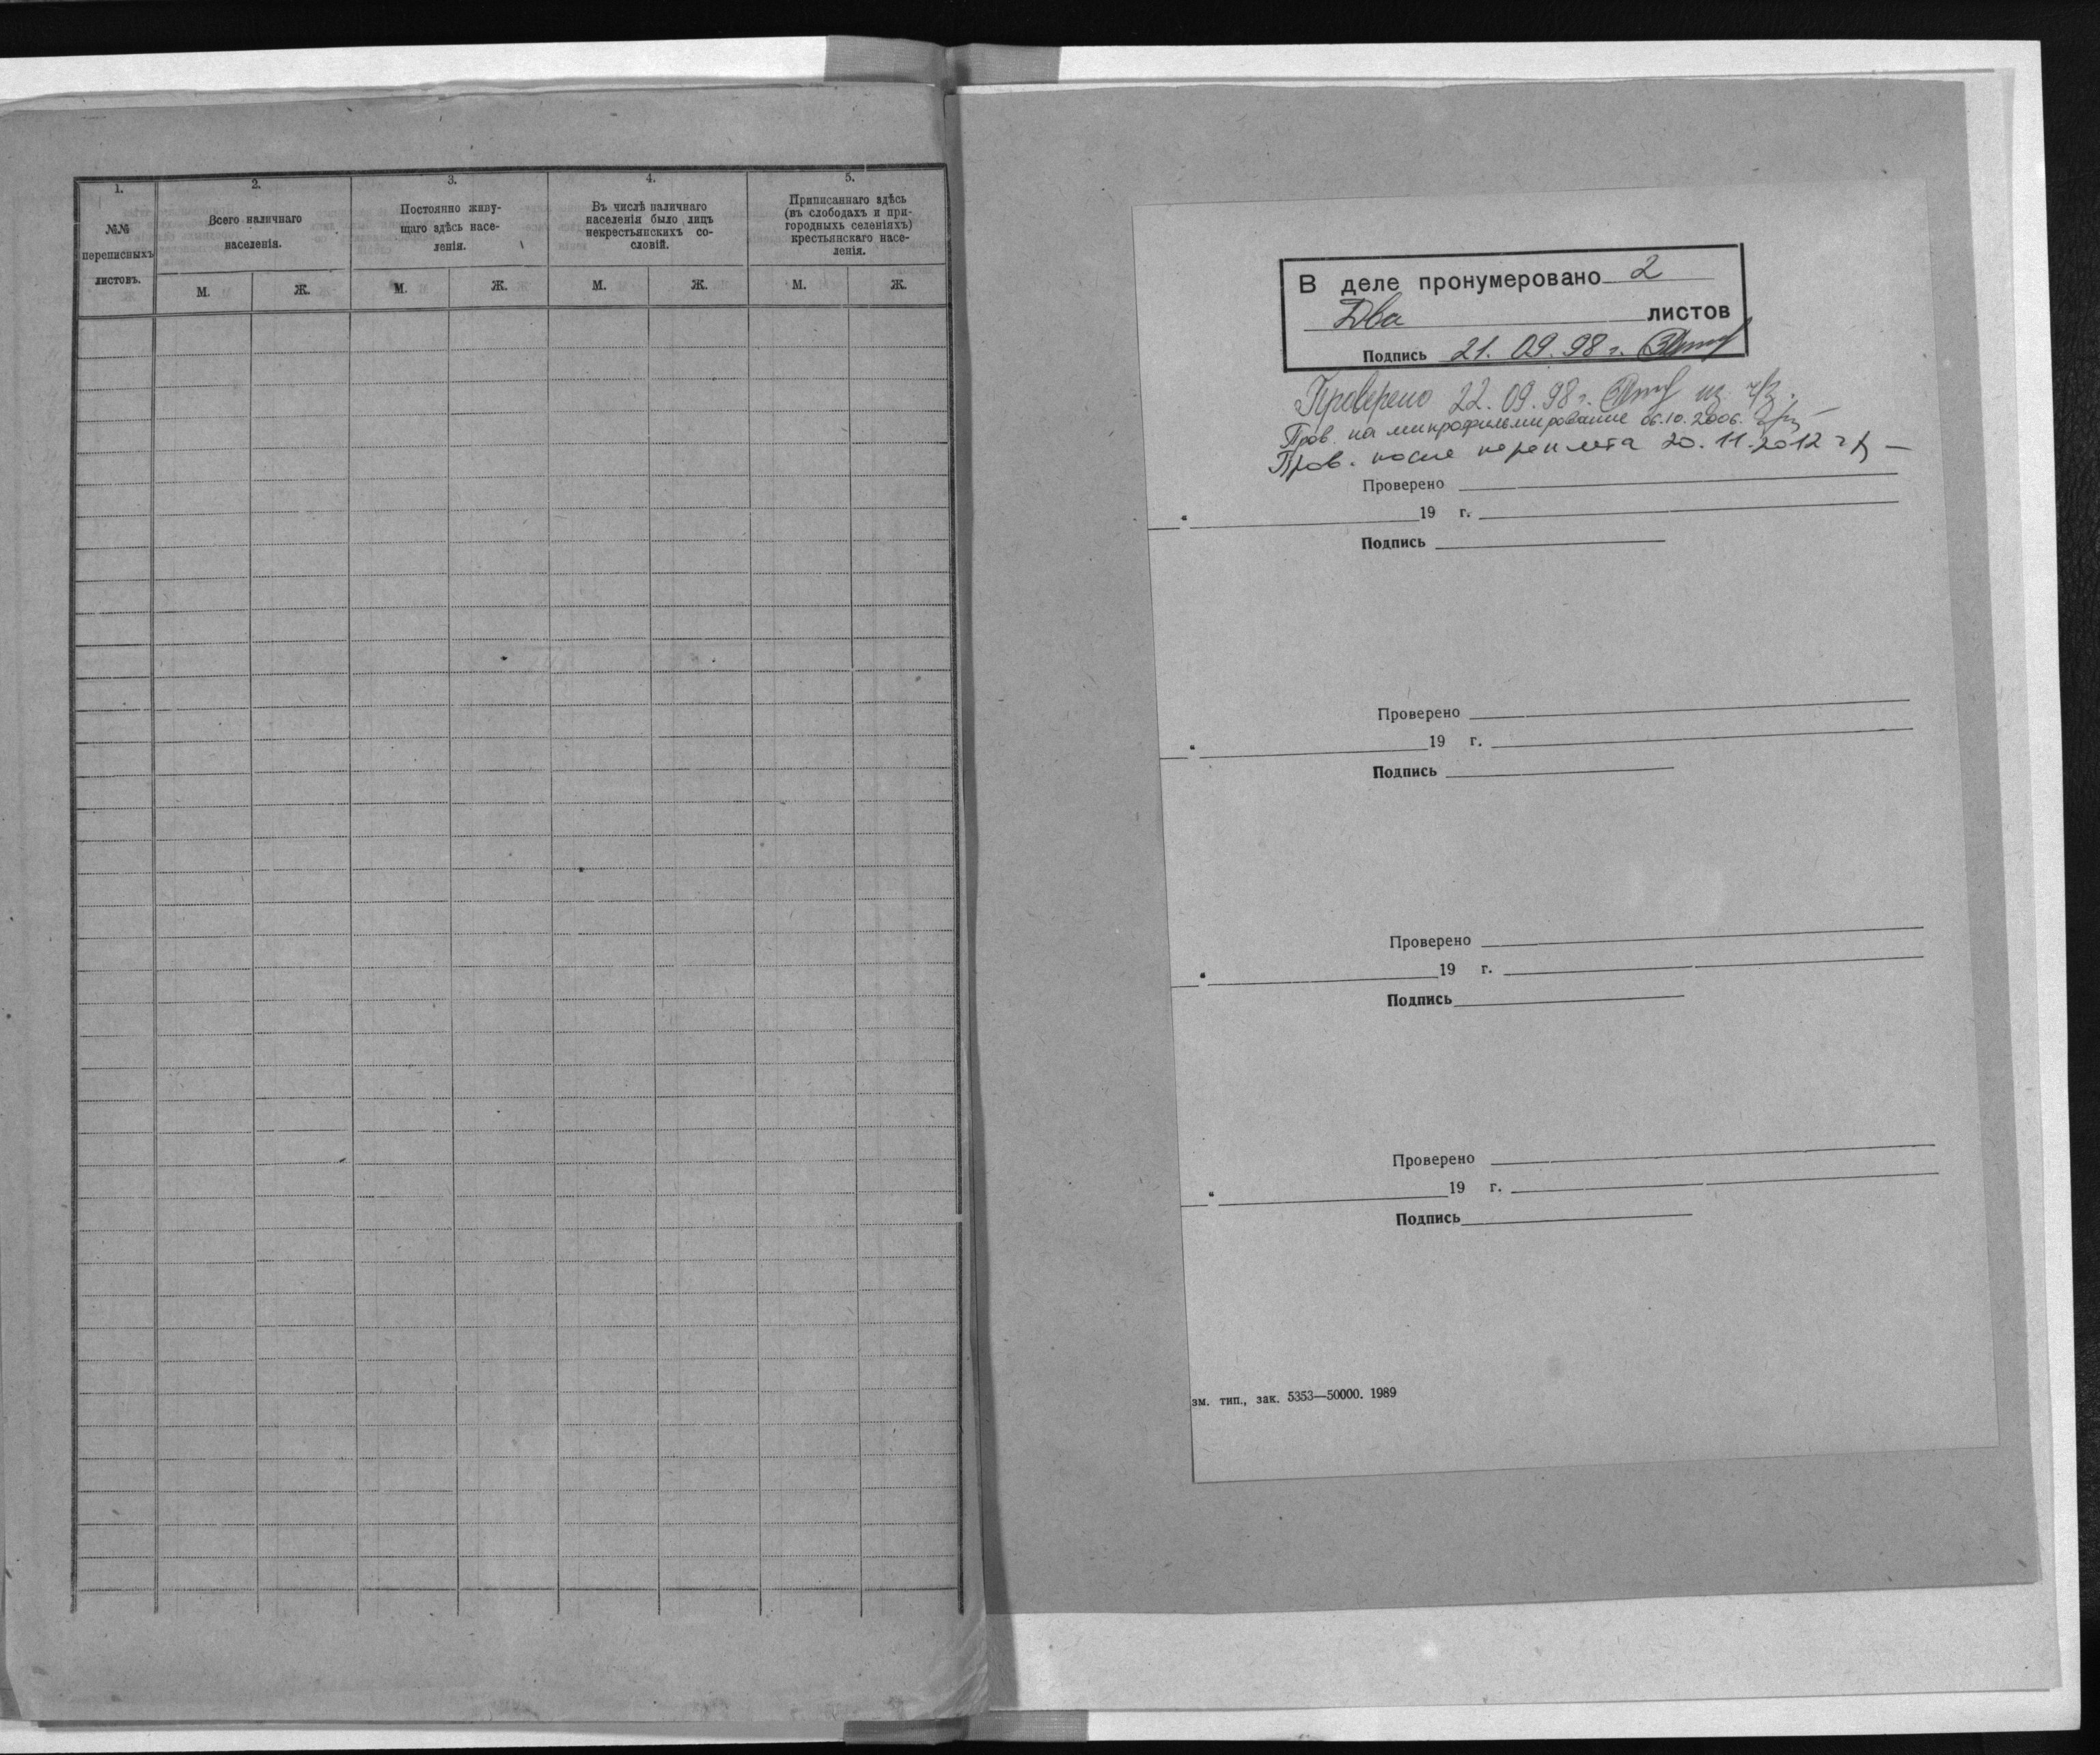 1.
№№
переписныхъ
листовъ.
2.
Всего наличнаго
населенія.
М. Ж.
3.
Постоянно живу-
щаго здѣсь насе-
ленія.
М. Ж.
4.
Въ числѣ наличнаго
населенія было лицъ
некрестьянскихъ со-
словій.
М. Ж.
5.
Приписаннаго здѣсь
(въ слободахъ и при-
городныхъ селеніяхъ)
крестьянскаго насе-
ленія.
М. Ж.
В деле пронумеровано 2
Два листов
Подпись 21.09.98 г.
Проверено 22.09.98 г.
Пров. на микрофильмирование 06.10.2006.
Пров. после переплета 20.11.2012
Проверено
" 19 г.
Подпись
Проверено
" 19 г.
Подпись
Проверено
" 19 г.
Подпись
Проверено
" 19 г.
Подпись
зм. тип., зак. 5353—50000. 1989